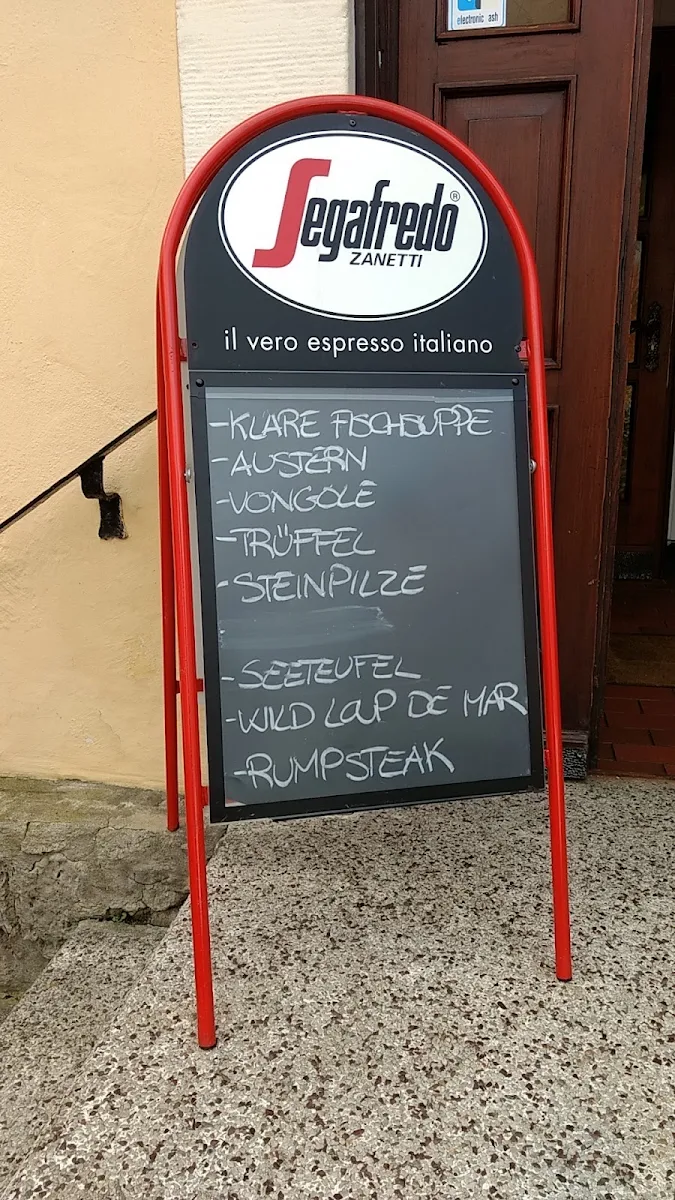 electronic cash
Segafredo®
ZANETTI
il vero espresso italiano
-KLARE FISCHSUPPE
-AUSTERN
-VONGOLE
-TRÜFFEL
-STEINPILZE
-SEETEUFEL
-WILD LOUP DE MAR
-RUMPSTEAK